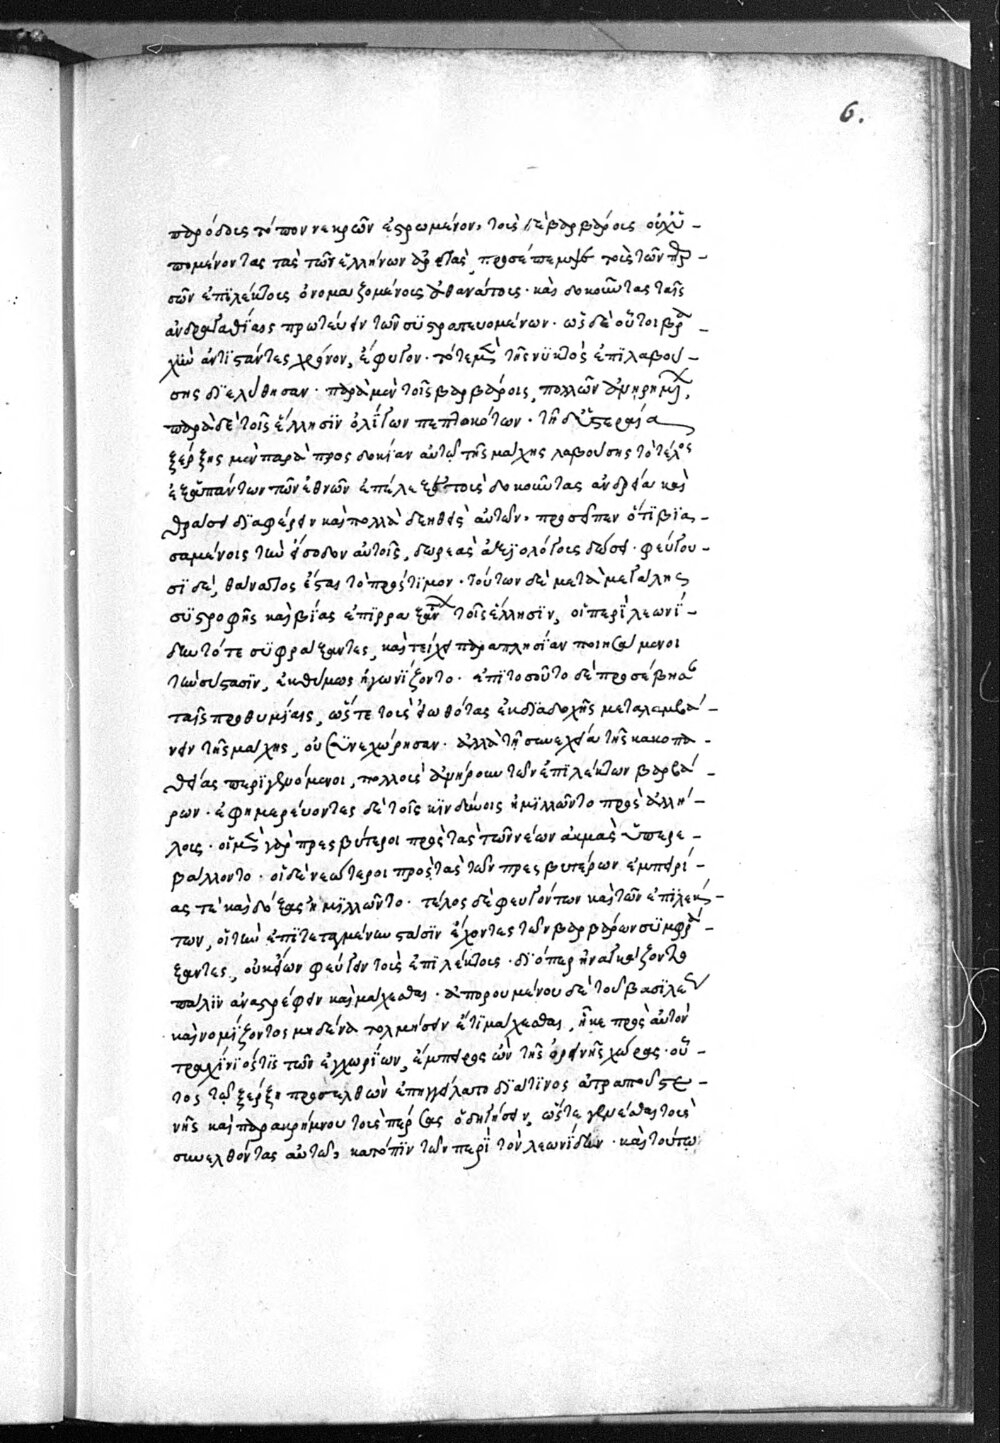 6.
παρόδους τόπον νεκρῶν ἐστρωμένον, τοὺς δὲ βαρβάρους οὐχ ὑ-
πομένοντας τὰς τῶν ἑλλήνων ἀρετὰς, προσέπεμψε τοὺς τῶν περ-
σῶν ἐπιλέκτους ὀνομαζομένους ἀθανάτους· καὶ δοκοῦντας ταῖς
ἀνδραγαθίαις πρωτεύειν τῶν συστρατευομένων· ὡς δὲ οὗτοι βρα-
χὺν ἀντιστάντες χρόνον, ἔφυγον· τότε μὲν τῆς νυκτὸς ἐπιλαβού-
σης διελύθησαν· παρὰ μὲν τοῖς βαρβάροις, πολλῶν ἀνῃρημένων,
παρὰ δὲ τοῖς ἕλλησιν ὀλίγων πεπτωκότων· τῇ δ' ὑστεραία
ξέρξης μὲν παρὰ προσδοκίαν αὐτῷ τῆς μάχης λαβούσης τὸ τέλος
ἐξ ἁπάντων τῶν ἐθνῶν ἐπέλεξε τοὺς δοκοῦντας ἀνδρεία καὶ
θράσει διαφέρειν καὶ πολλὰ δεηθεὶς αὐτῶν, προσεῖπεν ὅτι βια-
σαμένοις τὴν εἴσοδον αὐτοῖς, δωρεὰς ἀξιολόγους δώσει· φεύγου-
σι δὲ, θάνατος ἔσται τὸ πρόστιμον· τούτων δὲ μετὰ μεγάλης
συστροφῆς καὶ βίας ἐπιρραξάντων τοῖς ἕλλησιν, οἱ περὶ λεωνί-
δην τότε συμφράξαντες, καὶ τείχει παραπλησίαν ποιησάμενοι
τὴν σύστασιν, ἐκθύμως ἠγωνίζοντο· ἐπὶ τοσοῦτο δὲ προσέβησαν
ταῖς προθυμίαις, ὥστε τοὺς εἰωθότας ἐκ διαδοχῆς μεταλαμβά-
νειν τῆς μάχης, οὐ συνεχώρησαν· ἀλλὰ τῇ συνεχεία τῆς κακοπα-
θείας περιγενόμενοι, πολλοὺς ἀνῄρουν τῶν ἐπιλέκτων βαρβά-
ρων· ἐφημερεύοντες δὲ τοῖς κινδύνοις ἡμιλλῶντο πρὸς ἀλλή-
λους· οἱ μὲν γὰρ πρεσβύτεροι πρὸς τὰς τῶν νέων ἀκμὰς ὑπερε-
βάλλοντο· οἱ δὲ νεώτεροι πρὸς τὰς τῶν πρεσβυτέρων ἐμπειρί-
ας τε καὶ δόξας ἡμιλλῶντο· τέλος δὲ φευγόντων καὶ τῶν ἐπιλέκ-
των, οἱ τὴν ἐπιτεταγμένην στάσιν ἔχοντες τῶν βαρβάρων συμφρά-
ξαντες, οὐκ εἴων φεύγειν τοὺς ἐπιλέκτους· διόπερ ἠναγκάζοντο
πάλιν ἀναστρέφειν καὶ μάχεσθαι· ἀπορουμένου δὲ τοῦ βασιλέως
καὶ νομίζοντος μηδένα τολμήσειν ἔτι μάχεσθαι, ἧκε πρὸς αὐτὸν
τραχίνιός τις τῶν ἐγχωρίων, ἔμπειρος ὢν τῆς ὀρεινῆς χώρας· οὗ-
τος τῷ ξέρξῃ προσελθὼν ἐπηγγείλατο διά τινος ἀτραποῦ στε-
νῆς καὶ παρακρήμνου τοὺς πέρσας ὁδηγήσειν, ὥστε γενέσθαι τοὺς
συνελθόντας αὐτῶ, κατόπιν τῶν περὶ τὸν λεωνίδην· καὶ τούτω